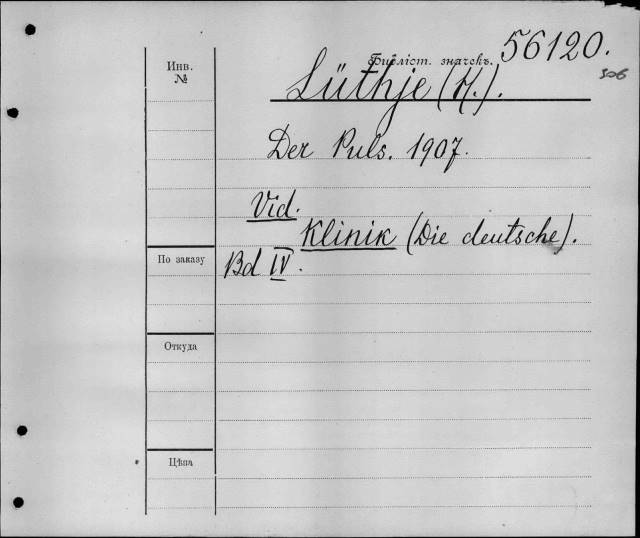 Инв.
№
Библіот. значекъ.
56120.
306
Lüthje (H.).
Der Puls. 1907.
Vid.
Klinik (Die deutsche).
Bd IV.
По заказу
Откуда
Цѣна